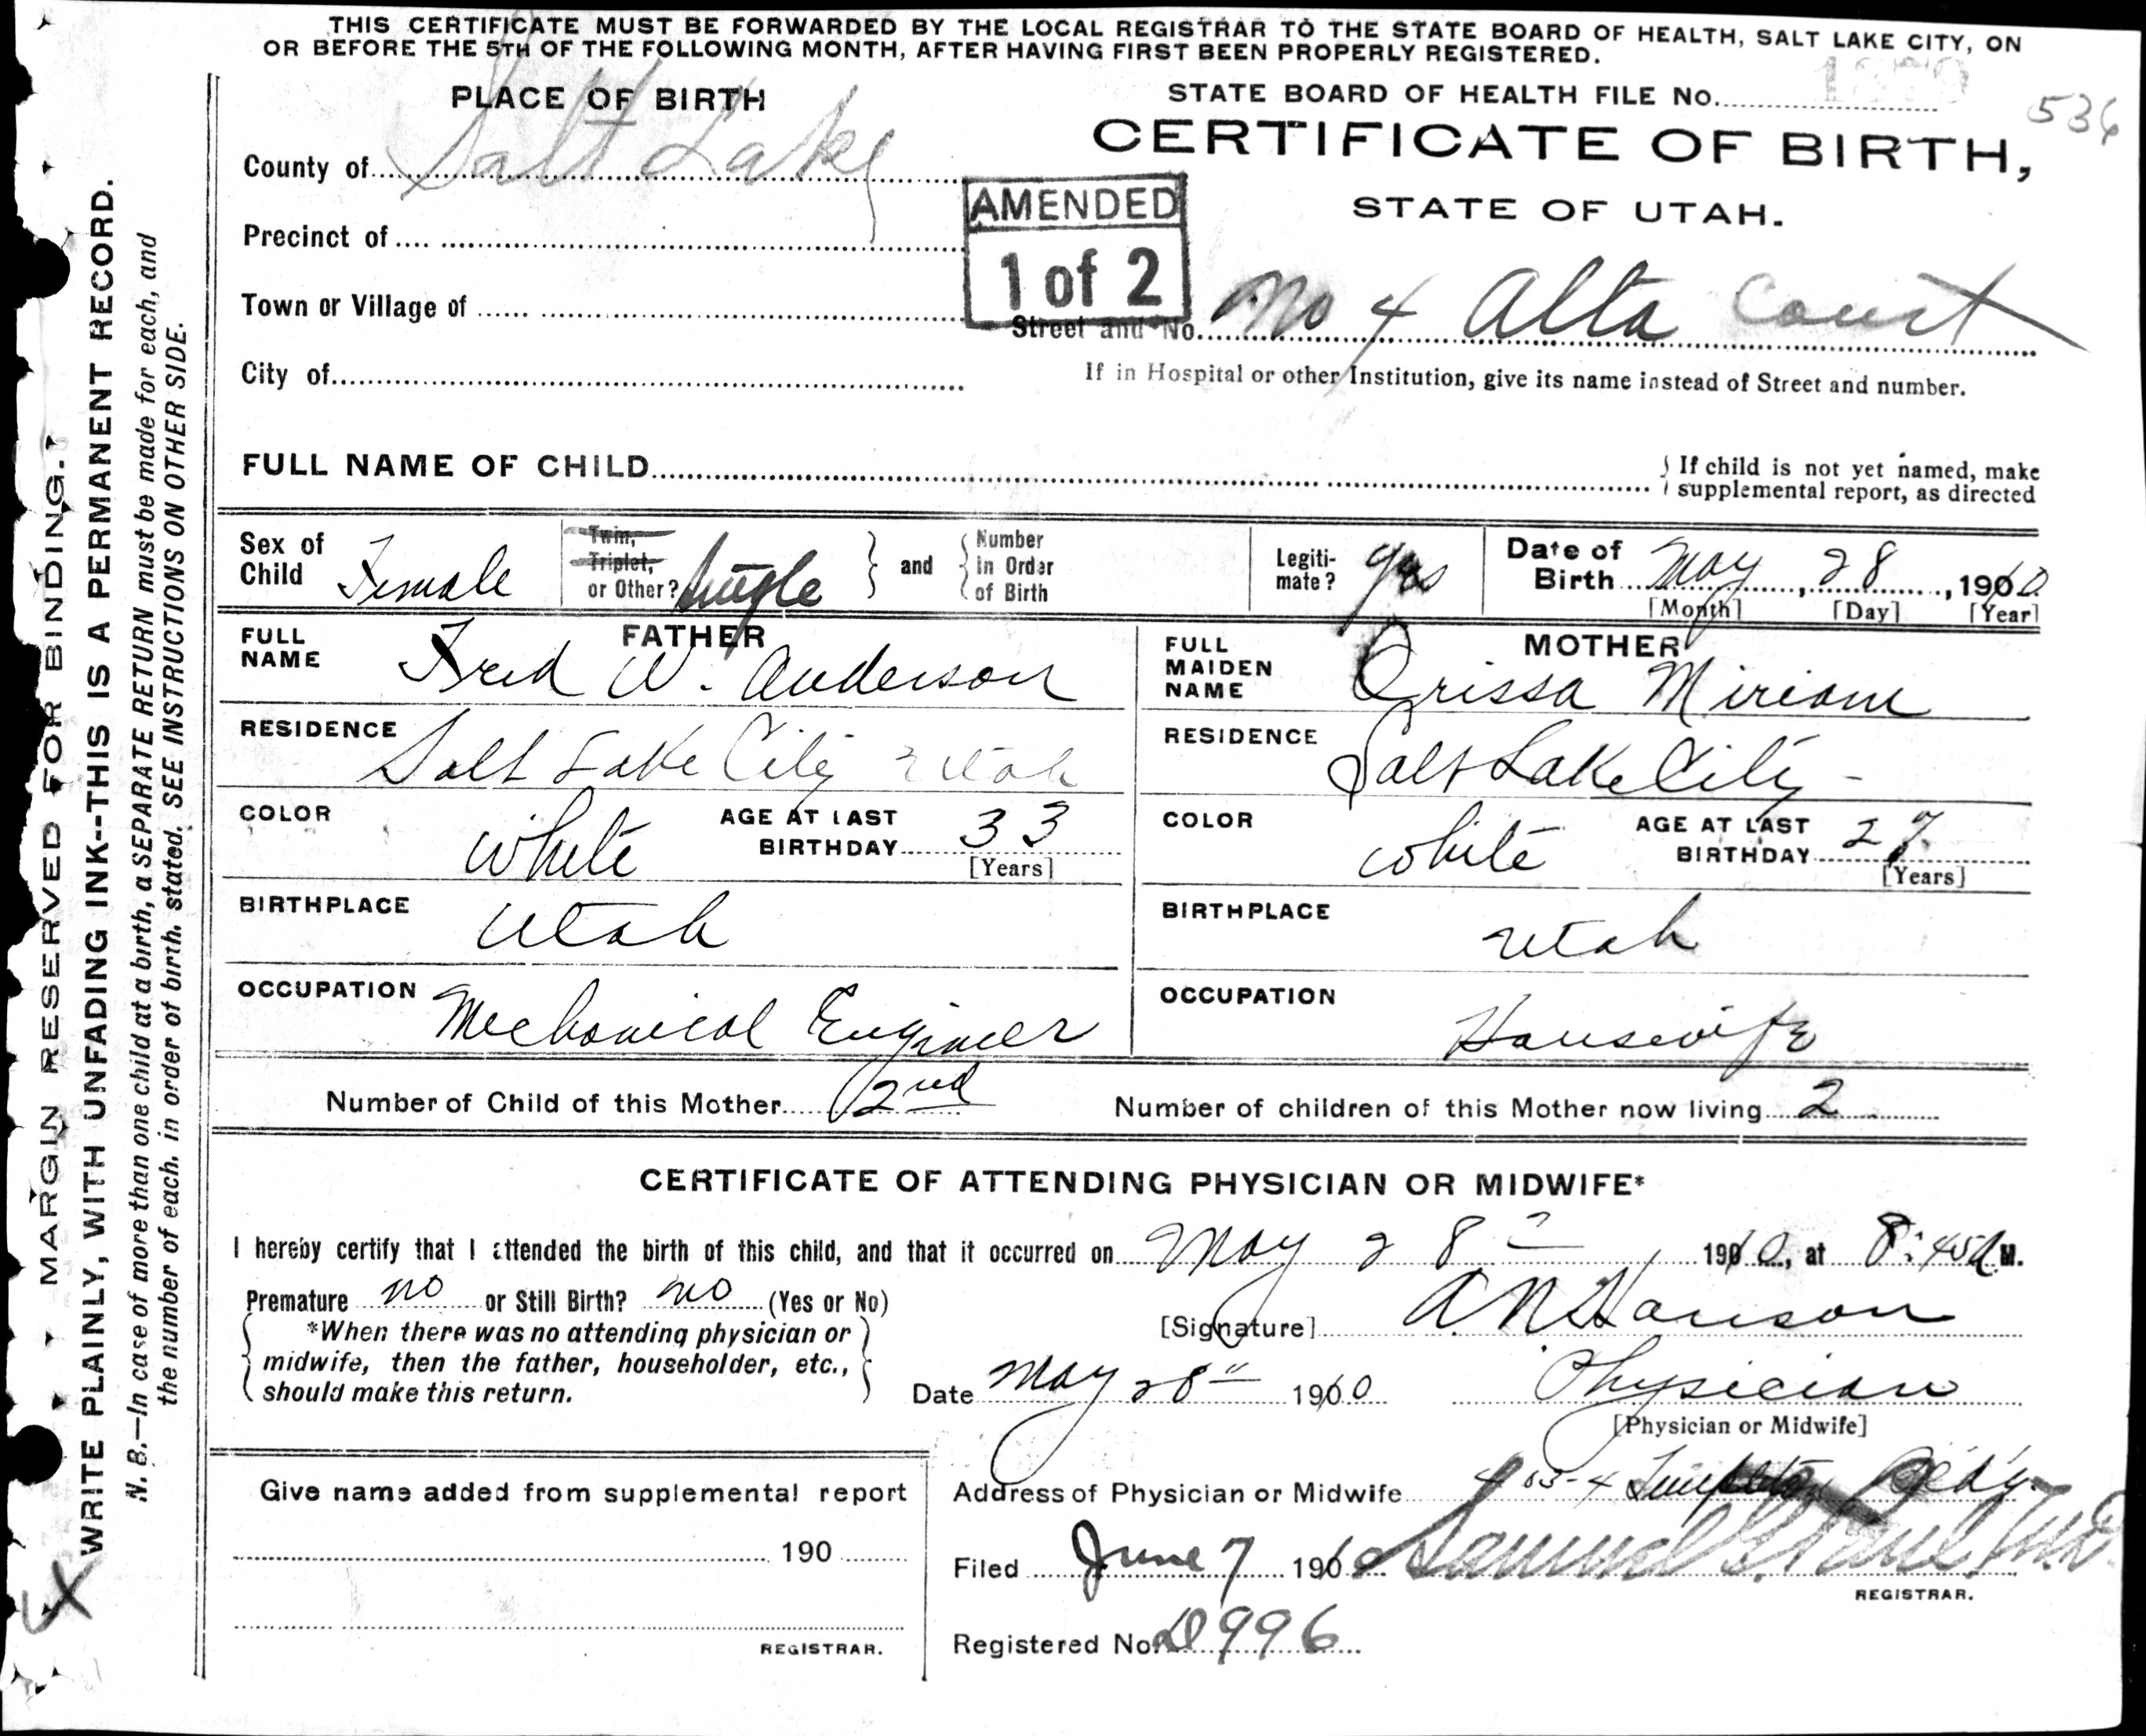 THIS CERTIFICATE MUST BE FORWARDED BY THE LOCAL REGISTRAR TO THE STATE BOARD OF HEALTH, SALT LAKE CITY, ON
OR BEFORE THE 5TH OF THE FOLLOWING MONTH, AFTER HAVING FIRST BEEN PROPERLY REGISTERED.
PLACE OF BIRTH
STATE BOARD OF HEALTH FILE No.
536
CERTIFICATE OF BIRTH,
STATE OF UTAH.
County of Salt Lake
Precinct of
Town or Village of
City of
AMENDED
1 of 2
Street and No. No 4 Alta Court
If in Hospital or other Institution, give its name instead of Street and number.
FULL NAME OF CHILD
If child is not yet named, make
supplemental report, as directed
Sex of Child Female
Twin, Triplet, or Other? Single
and Number in Order of Birth
Legiti-mate? yes
Date of Birth May, 28, 1910
[Month] [Day] [Year]
FATHER
FULL NAME Fred W. Anderson
RESIDENCE Salt Lake City Utah
COLOR White AGE AT LAST BIRTHDAY 33
[Years]
BIRTHPLACE Utah
OCCUPATION Mechanical Engineer
MOTHER
FULL MAIDEN NAME Orissa Miriam
RESIDENCE Salt Lake City -
COLOR White AGE AT LAST BIRTHDAY 27
[Years]
BIRTHPLACE Utah
OCCUPATION Housewife
Number of Child of this Mother 2nd
Number of children of this Mother now living 2
CERTIFICATE OF ATTENDING PHYSICIAN OR MIDWIFE*
I hereby certify that I attended the birth of this child, and that it occurred on May 28 1910, at 8:45 A M.
Premature no or Still Birth? no (Yes or No)
*When there was no attending physician or
midwife, then the father, householder, etc.,
should make this return.
[Signature] A. N. Hanson
Date May 28" 1910 Physician
[Physician or Midwife]
Give name added from supplemental report
190
REGISTRAR.
Address of Physician or Midwife 403-4 Templeton Bldg.
Filed June 7 1910 Samuel G. Paul M.D.
REGISTRAR.
Registered No. D996
MARGIN RESERVED FOR BINDING.
WRITE PLAINLY, WITH UNFADING INK--THIS IS A PERMANENT RECORD.
N. B.—In case of more than one child at a birth, a SEPARATE RETURN must be made for each, and
the number of each, in order of birth, stated. SEE INSTRUCTIONS ON OTHER SIDE.